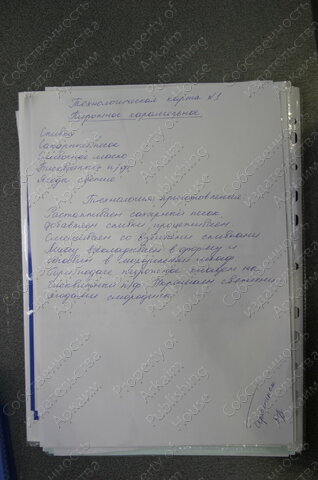 Технологическая карта №1
Пирожное карамельное.
Сливки
Сахарный песок
Сливочное масло
Бисквитный п/ф.
Ягоды свежие
Технология приготовления:
Растапливаем сахарный песок
добавляем сливки, процеживаем
Смешиваем со взбитыми сливками
Массу выкладываем в форму и
ставим в морозильный шкаф.
пирожное кладем на
бисквитный п/ф. Украшаем свежими
ягодами смородины.
Собственность Издательства Аркаим
Property of Arkaim Publishing House